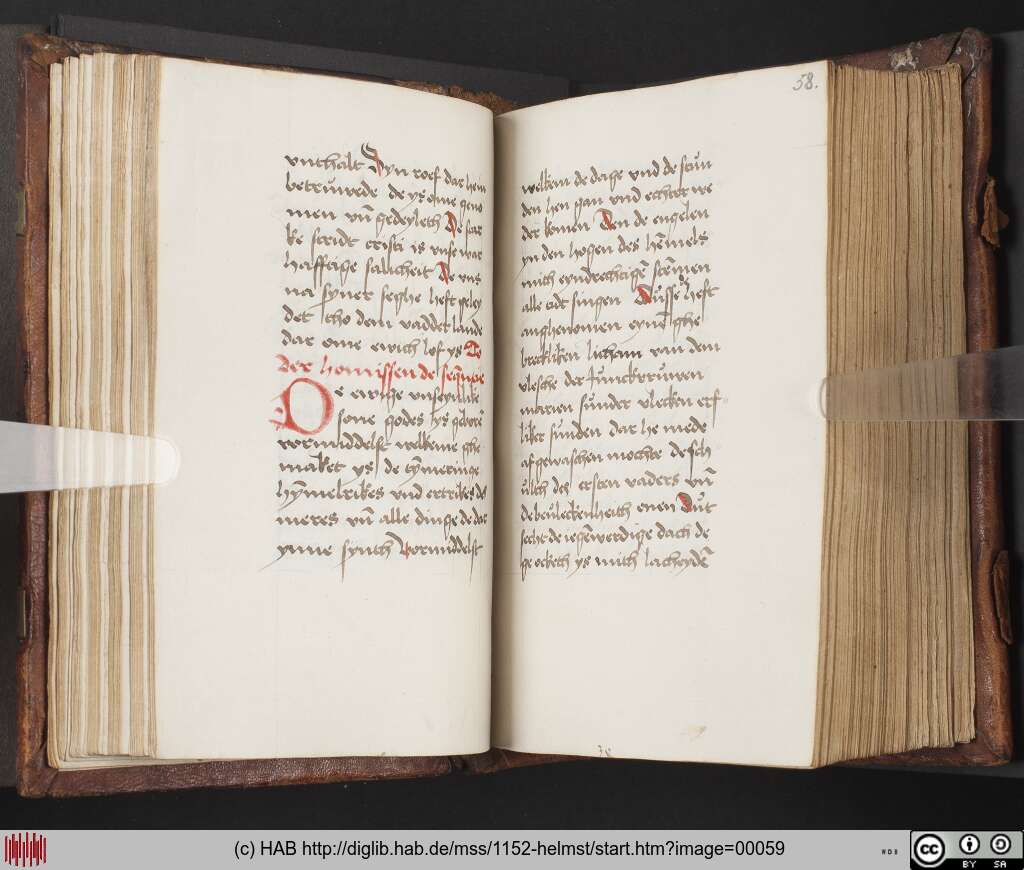 vnthalt Syn roef dar hen
betruwede de ys ome geno
men vn̄ gedeyleth De star
ke stridt cristi is vnse war
hafftige salicheit De vns
na syner seghe heft geley
det tho dem vadder lande
dar ome ewich lof ys To
der homissen de sequēcie
De ewige vnseynlike
sone godes ys gebore
vormiddelst welkeme ghe
maket ys de tymeringe
hȳmelrikes vnd ertrikes des
meres vn̄ alle dinge de dar
ynne synth Vormiddelst
58.
welkem de dage vnd de stun
den hen gan vnd echter we
der komen Den de engelen
yn den hogen des hēmels
mith eyndrechtigē stēmen
alle tidt singen Dusse heft
anghenomen eynē ghe
brekliken licham van dem
vlesche der Junckvruwen
marien sunder vlecken erf
liker sunden dar he mede
afgewaschen mochte de sch
ulth des ersten vaders vn̄
de beuleckenheith euen Dut
secht de iegēwerdige dach de
ge ocketh ys mith lacheydē
(c) HAB http://diglib.hab.de/mss/1152-helmst/start.htm?image=00059
WDB
cc
BY SA